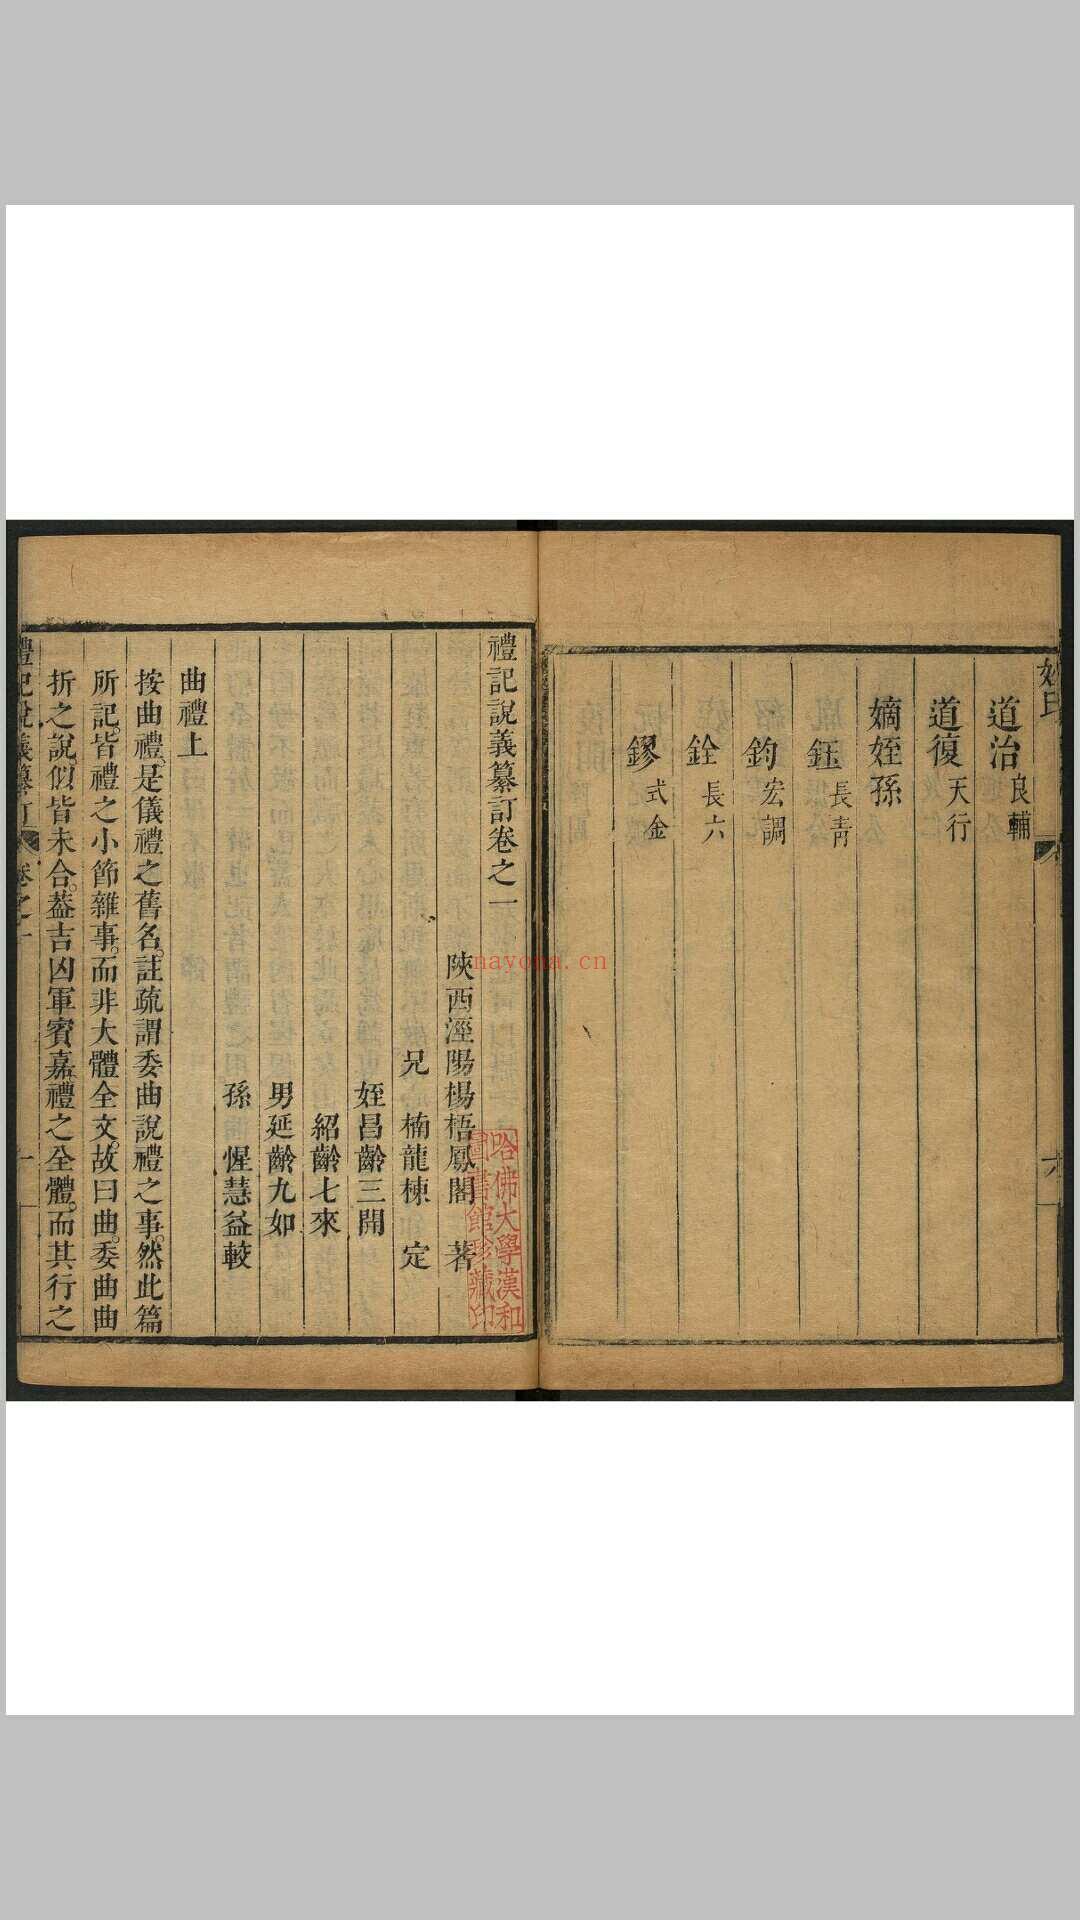 道治 良輔
道復 天行
嫡姪孫
鈺 長靑
鈞 宏調
銓 長六
鏐 式金
六
禮記說義纂訂卷之一
陝西涇陽楊梧鳳閣 著
兄 楠龍棟 定
姪昌齡三開
紹齡七來
男延齡九如
孫 惺慧益較
曲禮上
按曲禮是儀禮之舊名註疏謂委曲說禮之事然此篇
所記皆禮之小節雜事而非大體全文故曰曲委曲曲
折之說似皆未合葢吉凶軍賓嘉禮之全體而其行之
禮記說義纂訂 卷之一 一
哈佛大學漢和圖書館珍藏印
nayona.cn